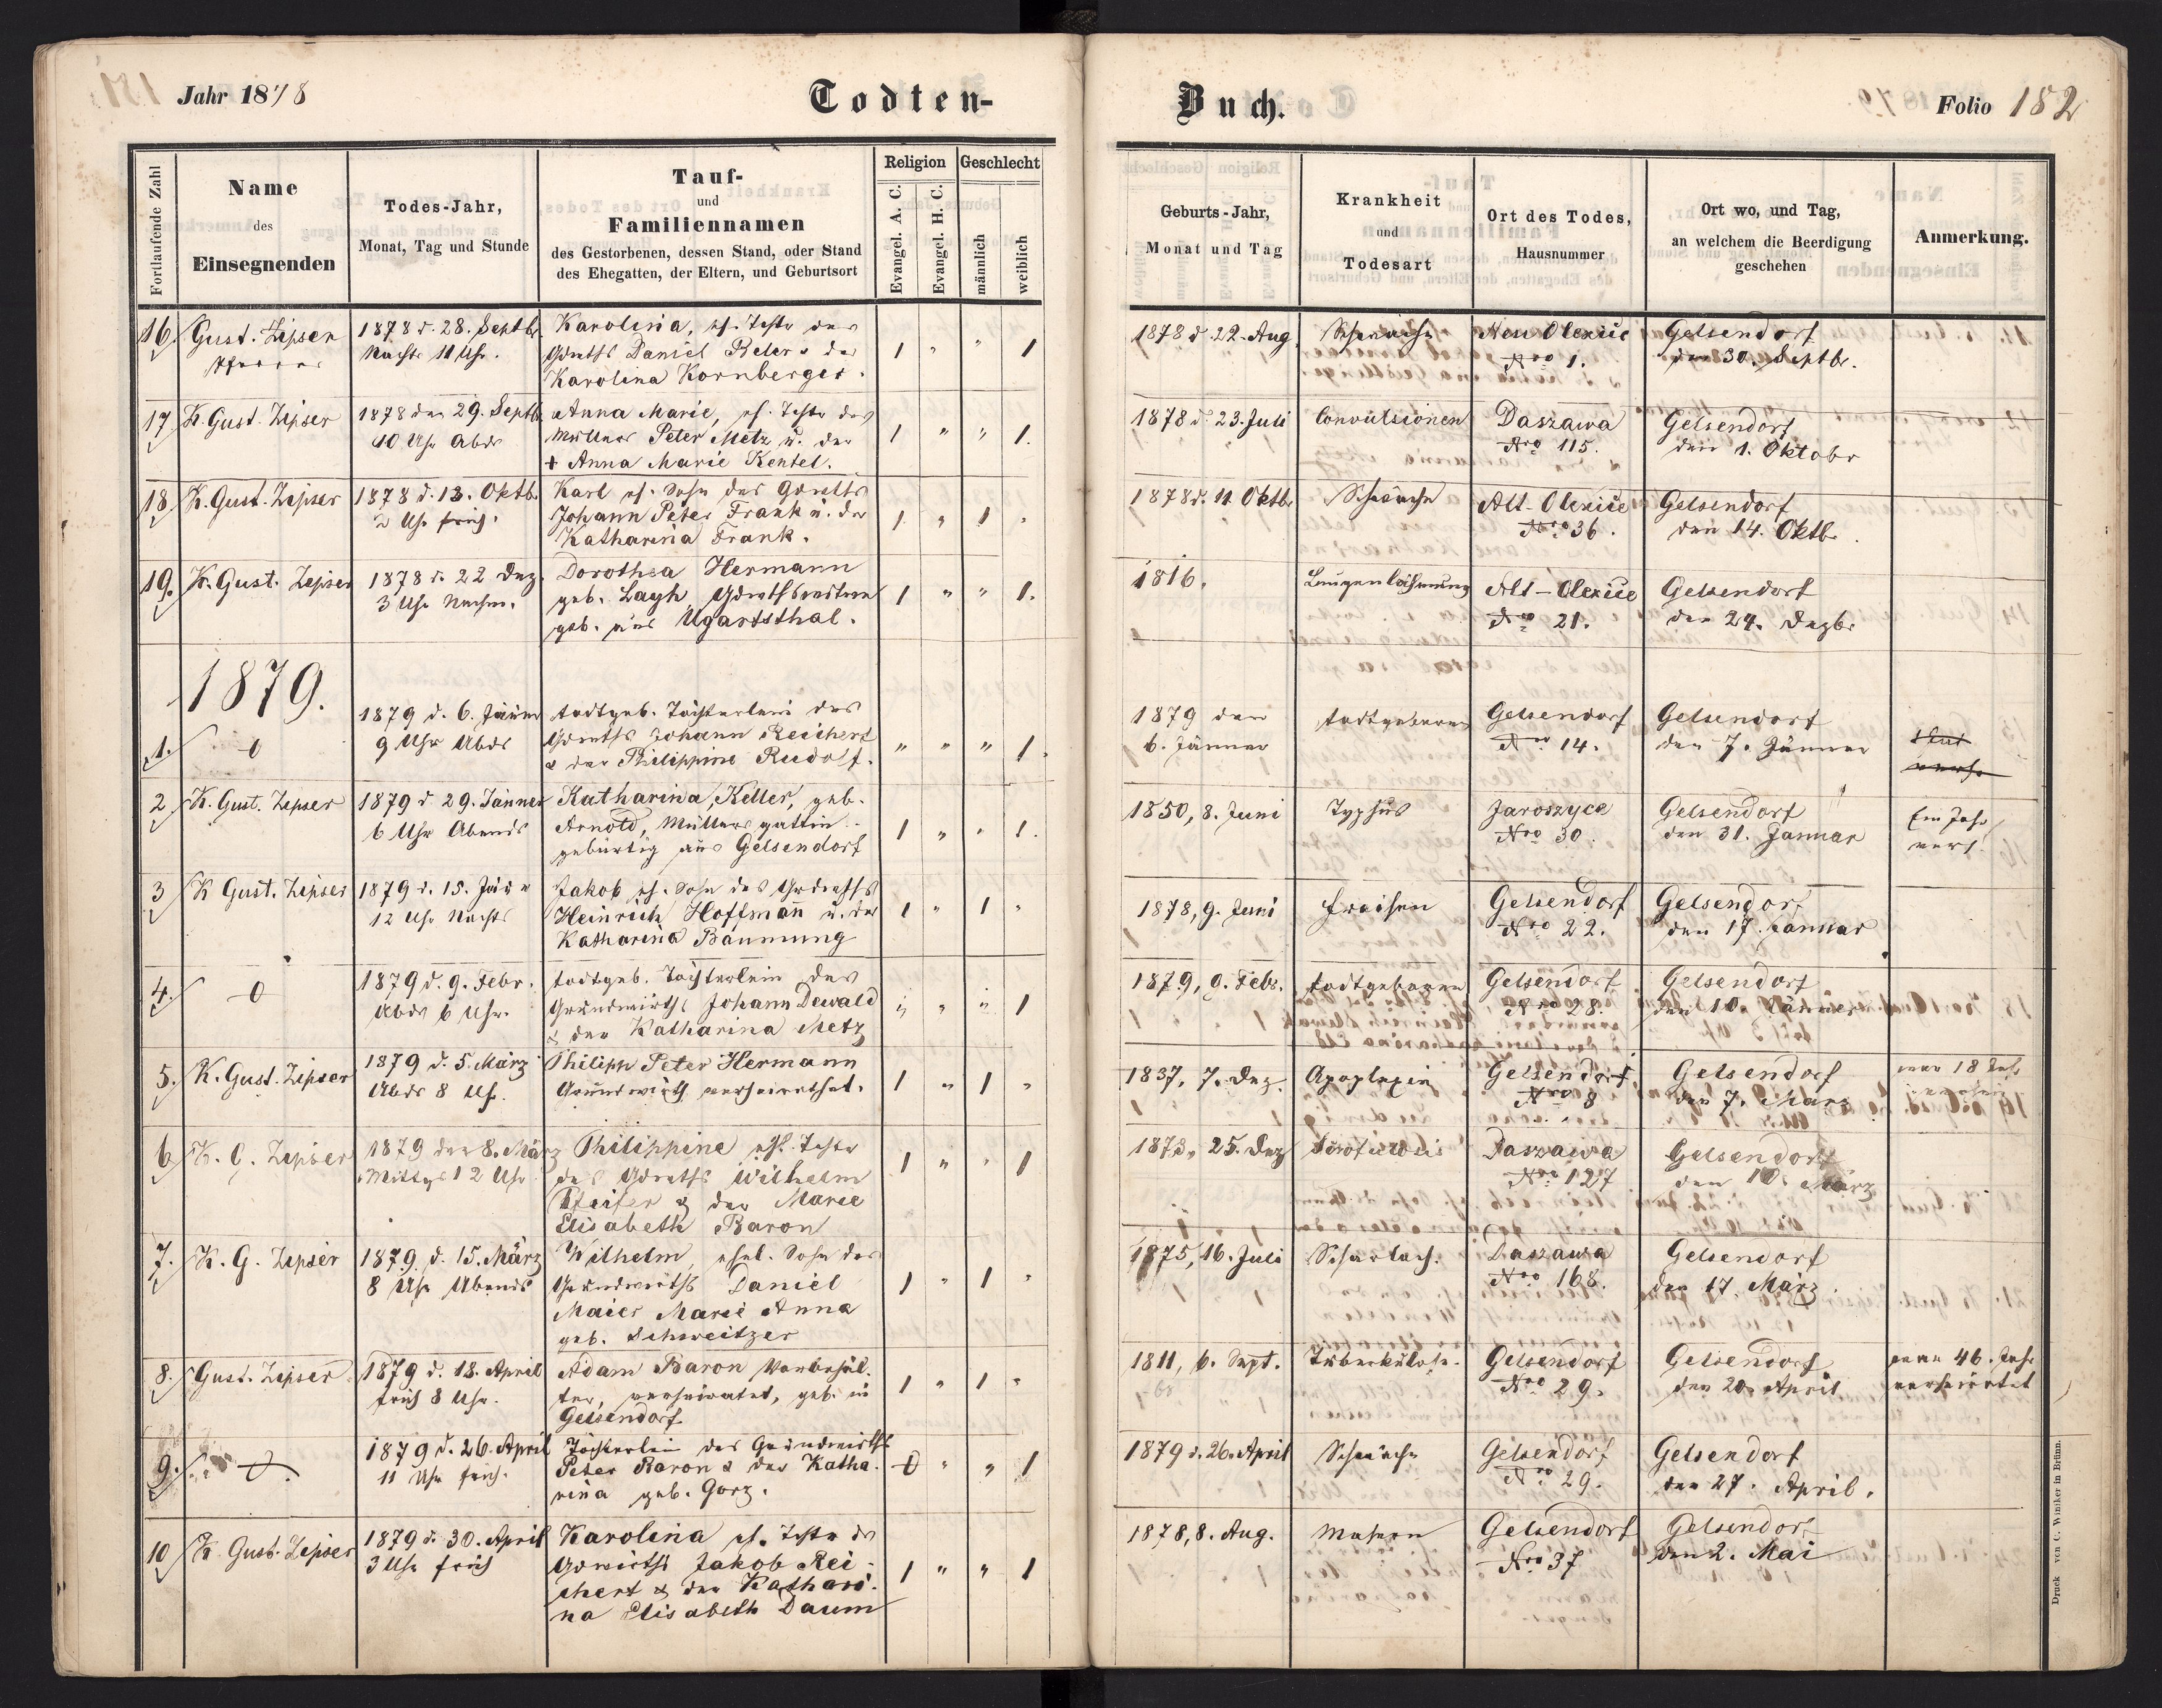 Jahr 1878
Todten-
Buch.
Folio 182
Fortlaufende Zahl
Name
des
Einsegnenden
Todes-Jahr,
Monat, Tag und Stunde
Tauf-
und
Familiennamen
des Gestorbenen, dessen Stand, oder Stand
des Ehegatten, der Eltern, und Geburtsort
Religion
Evangel. A. C.
Evangel. H. C.
Geschlecht
männlich
weiblich
Geburts-Jahr,
Monat und Tag
Krankheit
und
Todesart
Ort des Todes,
Hausnummer
Ort wo, und Tag,
an welchem die Beerdigung
geschehen
Anmerkung.
16. Gust. Zipser
Pfarrer
1878 d. 28. Septb.
Nachts 11 Uhr.
Karolina, eh. Tochter des
Gdwirths Daniel Beler u. der
Karolina Kornberger.
1 " " 1
1878 d. 22. Aug.
Schwäche
Neu Olexice
Nro 1.
Gelsendorf
den 30. Septbr.
17 K. Gust. Zipser
1878 den 29. Septb.
10 Uhr Abds
Anna Marie, eh. Tochter des
Müllers Peter Metz u. der
+ Anna Marie Kentel.
1 " " 1.
1878 d. 23. Juli
Convulsionen
Daszawa
Nro 115.
Gelsendorf
den 1. Oktobr
18. K. Gust. Zipser
1878 d. 13. Oktb.
2 Uhr früh.
Karl eh. Sohn des Gdwirths
Johann Peter Frank u. der
Katharina Frank.
1. " 1 "
1878 d. 11 Oktbr
Schwäche
Alt-Olexice
Nro 36.
Gelsendorf
den 14. Oktb.
19. K. Gust. Zipser
1878 d. 22 Dez.
3 Uhr Nachm.
Dorothea Hermann
geb. Layh, Gdwirths
geb. aus Ugartsthal.
1 " " 1.
1816.
Lungenlähmung
Alt-Olexice
Nro 21.
Gelsendorf
den 24. Dezbr
1879.
1. 0
1879 d. 6. Jänner
9 Uhr Abds
todtgeb. Töchterlein des
Gdwirths Johann Reichert
& der Philippine Rudolf.
" " " 1.
1879 den
6. Jänner
todtgeboren
Gelsendorf
Nro 14.
Gelsendorf
den 7. Jänner
2 K. Gust. Zipser
1879 d. 29. Jänner
6 Uhr Abends
Katharina, Keller, geb.
Arnold, Müllersgattin
gebürtig aus Gelsendorf
1 " " 1.
1850, 8. Juni
Typhus
Jaroszyce
Nro 30.
Gelsendorf
den 31. Januar
Ein Jahr
verh.
3 K Gust. Zipser
1879 d. 15. Jän
12 Uhr Nachts
Jakob eh. Sohn des Grdwirths
Heinrich Hoffmañ u. der
Katharina Baumung
1 " 1 "
1878, 9. Juni
Fraisen
Gelsendorf
Nro 22.
Gelsendorf
den 17. Januar
4. 0
1879 d. 9. Febr.
Abds 6 Uhr.
todtgeb. Töchterlein des
Grundwirths Johann Dewald
& der Katharina Metz
" " " 1
1879, 9. Febr.
todtgeboren
Gelsendorf
Nro 28.
Gelsendorf
den 10. Jänner
5. K. Gust. Zipser
1879 d. 5. März
Abds 8 Uhr.
Philipp Peter Hermann
Grundwirth verheirathet.
1 " 1 "
1837, 7. Dez.
Apoplexie
Gelsendorf
Nro 8
Gelsendorf
den 7. März
war 18 Jahr
6 K. G. Zipser
1879 den 8. März
Mittags 12 Uhr
Philippine ehl. Tochter
des Gdwirths Wilhelm
Pfeifer & der Marie
Elisabeth Baron
1 " " 1
1873, 25. Dez
Daszawa
Nro 127
Gelsendorf
den 10. März
7. K. G. Zipser
1879 d. 15. März
8 Uhr Abends
Wilhelm, ehel. Sohn des
Grundwirths Daniel
Maier Marie Anna
geb. Schweitzer
1 " 1 "
1875, 16. Juli
Scharlach.
Daszawa
Nro 168.
Gelsendorf
den 17. März.
8. Gust. Zipser
1879 d. 18. April
früh 8 Uhr.
Adam Baron Vorbehäl-
ter, verheiratet, geb. in
Gelsendorf.
1 " 1 "
1811, 6. Sept.
68
Tuberkulose.
Gelsendorf
Nro 29.
Gelsendorf
den 20. April
war 46. Jahr
verheiratet
9. 0.
1879 d. 26. April
11 Uhr früh.
Töchterlein des Grundwirths
Peter Baron & der Katha-
rina geb. Gorz.
0 " " 1
1879 d. 26. April
Schwäche
Gelsendorf
Nro 29.
Gelsendorf
den 27. April.
10 K. Gust. Zipser
1879 d. 30. April
3 Uhr früh
Karolina eh. Tochter des
Gdwirths Jakob Rei-
chert & der Kathari-
na Elisabeth Daum
1 " " 1
1878, 8. Aug.
Masern
Gelsendorf
Nro 37
Gelsendorf
den 2. Mai
Druck von C. Winiker in Brünn.